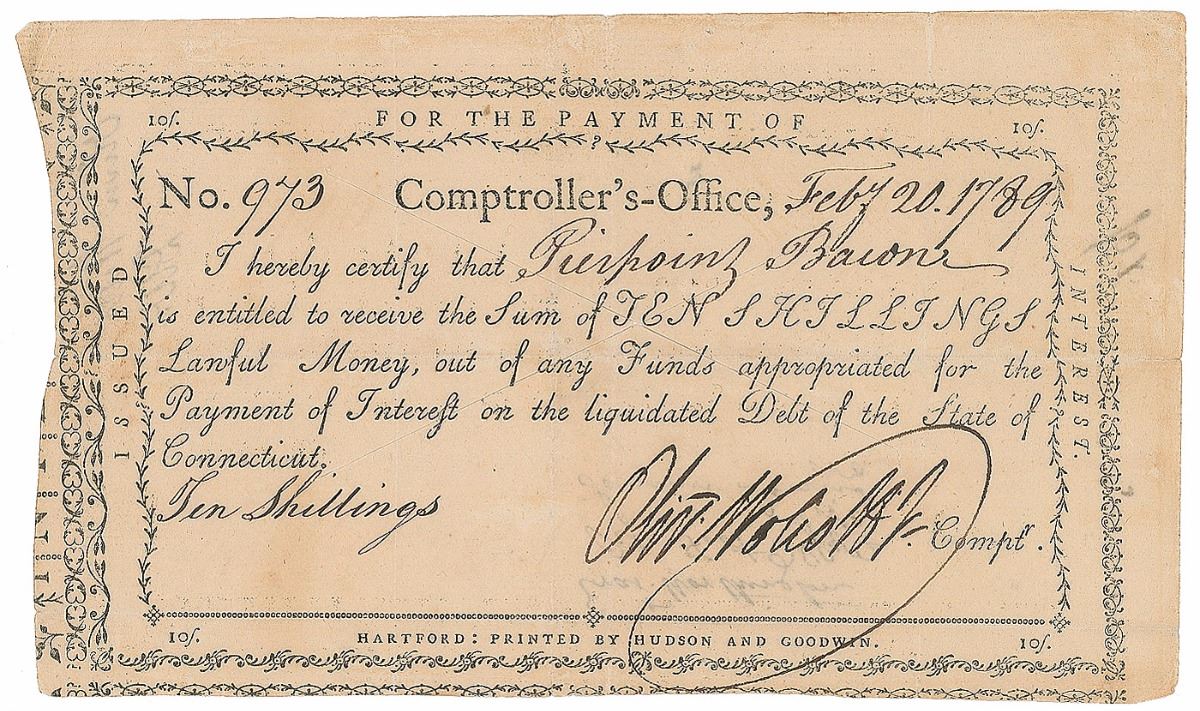 FOR THE PAYMENT OF
10ſ.
10ſ.
No. 973 Comptroller's-Office, Feby 20. 1789
I hereby certify that Pierpoint Bacon
is entitled to receive the Sum of TEN SHILLINGS
Lawful Money, out of any Funds appropriated for the
Payment of Intereſt on the liquidated Debt of the State of
Connecticut.
Ten Shillings
Olivr. Wolcott Jr. Comptr.
ISSUED
INTEREST.
10ſ.
HARTFORD: PRINTED BY HUDSON AND GOODWIN.
10ſ.